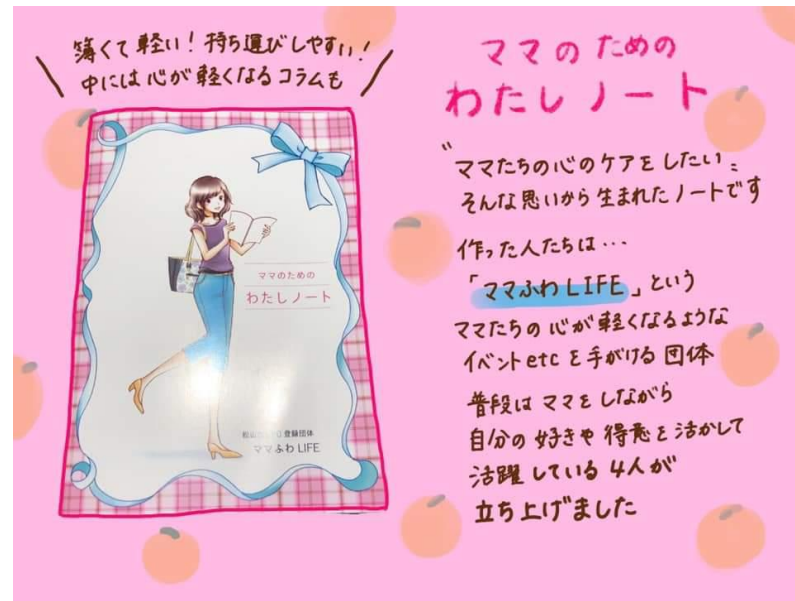 薄くて軽い！持ち運びしやすい！
中には心が軽くなるコラムも
ママのための
わたしノート
登録団体
ママふわ LIFE
ママのための
わたしノート
"ママたちの心のケアをしたい"
そんな思いから生まれたノートです
作った人たちは…
「ママふわLIFE」という
ママたちの心が軽くなるような
イベントetcを手がける団体
普段はママをしながら
自分の好きや得意を活かして
活躍している4人が
立ち上げました